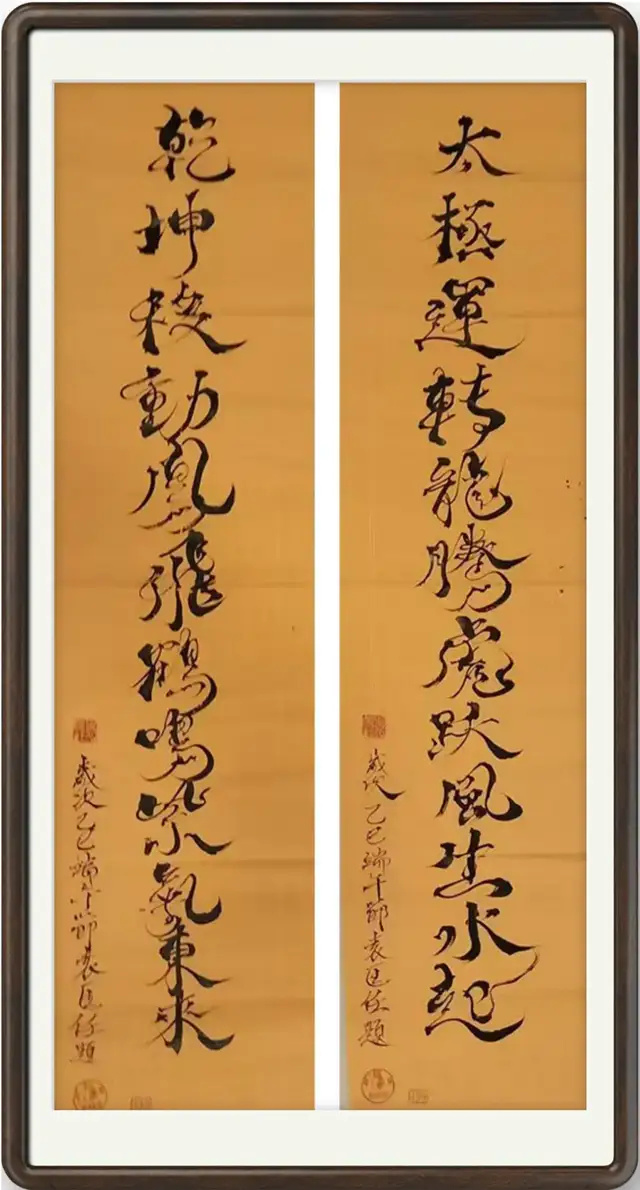 太極運轉龍騰虎跃風生水起
歲次乙巳端午節袁題
乾坤動鳳飛鶴鳴紫氣東來
歲次乙巳端午節袁題